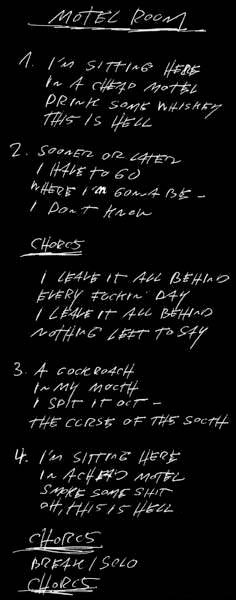 MOTEL ROOM
1. I'M SITTING HERE
IN A CHEAP MOTEL
DRINK SOME WHISKEY
THIS IS HELL
2. SOONER OR LATER
I HAVE TO GO
WHERE I'M GONNA BE –
I DON'T KNOW
CHORUS
I LEAVE IT ALL BEHIND
EVERY FUCKIN' DAY
I LEAVE IT ALL BEHIND
NOTHING LEFT TO SAY
3. A COCKROACH
IN MY MOUTH
I SPIT IT OUT –
THE CURSE OF THE SOUTH
4. I'M SITTING HERE
IN A CHEAP MOTEL
SMOKE SOME SHIT
OH, THIS IS HELL
CHORUS
BREAK / SOLO
CHORUS